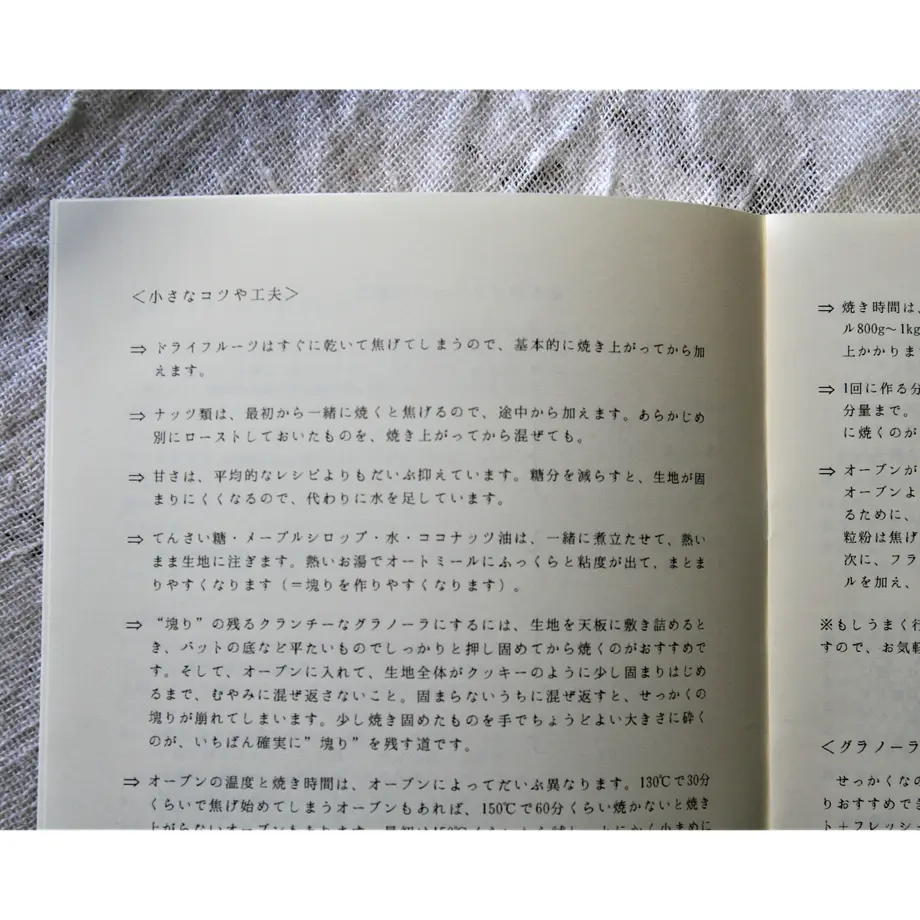 ＜小さなコツや工夫＞
⇒ ドライフルーツはすぐに乾いて焦げてしまうので、基本的に焼き上がってから加
えます。
⇒ ナッツ類は、最初から一緒に焼くと焦げるので、途中から加えます。あらかじめ
別にローストしておいたものを、焼き上がってから混ぜても。
⇒ 甘さは、平均的なレシピよりもだいぶ抑えています。糖分を減らすと、生地が固
まりにくくなるので、代わりに水を足しています。
⇒ てんさい糖・メープルシロップ・水・ココナッツ油は、一緒に煮立たせて、熱い
まま生地に注ぎます。熱いお湯でオートミールにふっくらと粘度が出て、まとま
りやすくなります（＝塊りを作りやすくなります）。
⇒ “塊り”の残るクランチーなグラノーラにするには、生地を天板に敷き詰めると
き、バットの底など平たいものでしっかりと押し固めてから焼くのがおすすめで
す。そして、オーブンに入れて、生地全体がクッキーのように少し固まりはじめ
るまで、むやみに混ぜ返さないこと。固まらないうちに混ぜ返すと、せっかくの
塊りが崩れてしまいます。少し焼き固めたものを手でちょうどよい大きさに砕く
のが、いちばん確実に”塊り”を残す道です。
⇒ オーブンの温度と焼き時間は、オーブンによってだいぶ異なります。130℃で30分
くらいで焦げ始めてしまうオーブンもあれば、150℃で60分くらい焼かないと焼き
上がらないオーブンもあります。
⇒ 焼き時間は、
ル800g～1kg
上かかりま
⇒ 1回に作る分
分量まで。
に焼くのが
⇒ オーブンが
オーブンよ
るために、
粒粉は焦げ
次に、フラ
ルを加え、
※もしうまく行
すので、お気軽
＜グラノーラ
せっかくなの
りおすすめでき
ト＋フレッシ